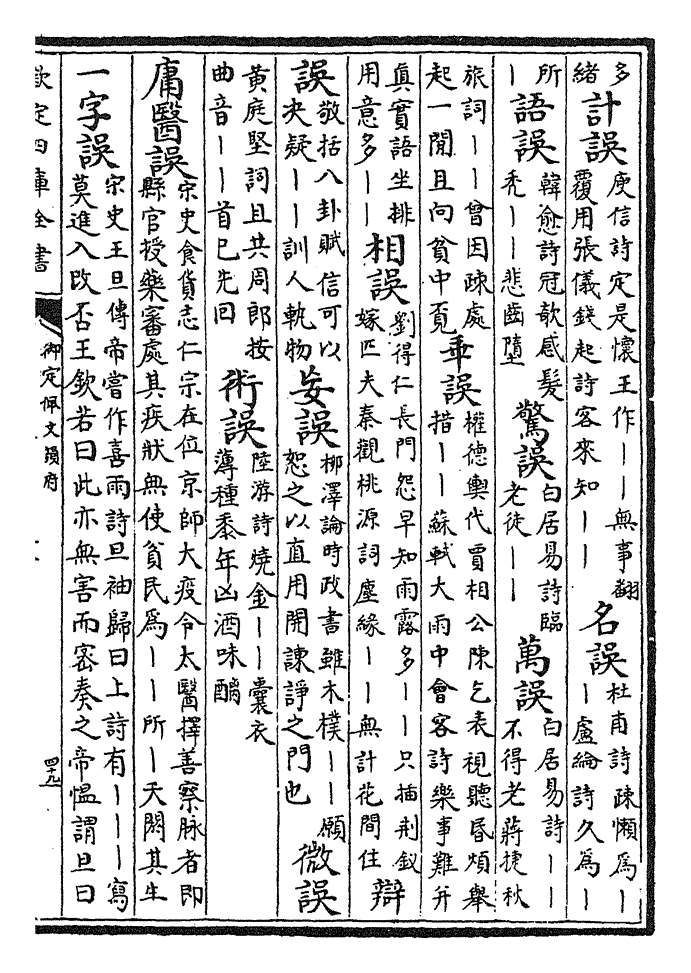 多緒計誤庾信詩定是懷王作丨丨無事翻覆用張儀錢起詩客來知丨丨名誤杜甫詩疎懶為丨丨盧綸詩久為丨
所丨語誤韓愈詩冠欹感髮禿丨丨悲齒墮驚誤白居易詩臨老徒丨丨萬誤白居易詩丨丨不得老蔣捷秋
旅詞丨丨曾因疎處起一閒且向貧中覓乖誤權德輿代賈相公陳乞表視聽昏煩舉措丨丨蘇軾大雨中會客詩樂事難并
真實語坐排用意多丨丨相誤劉得仁長門怨早知雨露多丨丨只插荆釵嫁匹夫秦觀桃源詞塵緣丨丨無計花間住辯
誤敬括八卦賦信可以決疑丨丨訓人軌物妄誤柳澤論時政書雖木樸丨丨願恕之以直用開諫諍之門也微誤
黄庭堅詞且共周郎按曲音丨丨首已先回術誤陸游詩燒金丨丨囊衣薄種黍年凶酒味醨
庸醫誤宋史食貨志仁宗在位京師大疫令太醫擇善察脉者即縣官授藥審處其疾狀無使貧民為丨丨所丨天閼其生
一字誤宋史王旦傳帝嘗作喜雨詩旦袖歸曰上詩有丨丨丨寫莫進入改否王欽若曰此亦無害而密奏之帝愠謂旦曰
欽定四庫全書
御定佩文韻府
四十九